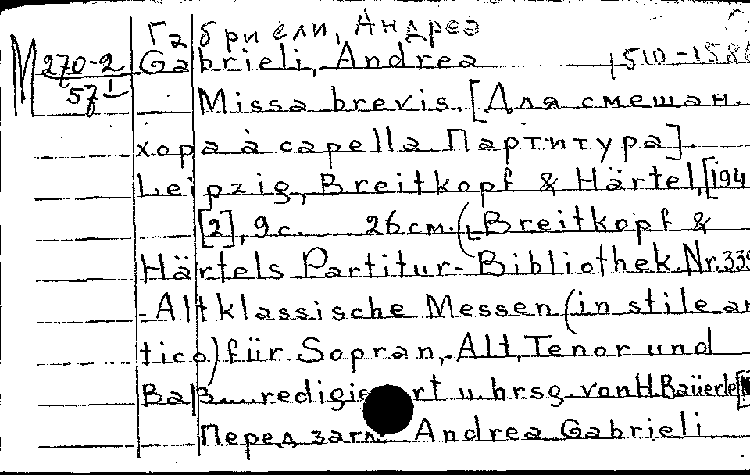 Габриели, Андреа
М 270-2 Gabrieli, Andrea 1510-1586
57 I Missa brevis. [Для смешан.
хора à capella Партитура].
Leipzig, Breitkopf & Härtel, [194
[2], 9 с. 26 см. (Breitkopf &
Härtels Partitur-Bibliothek. Nr. 339
-Altklassische Messen (in stile an
tico) für Sopran, Alt, Tenor und
Baß... redigiert u. hrsg. von H. Bäuerle
Перед загл. Andrea Gabrieli